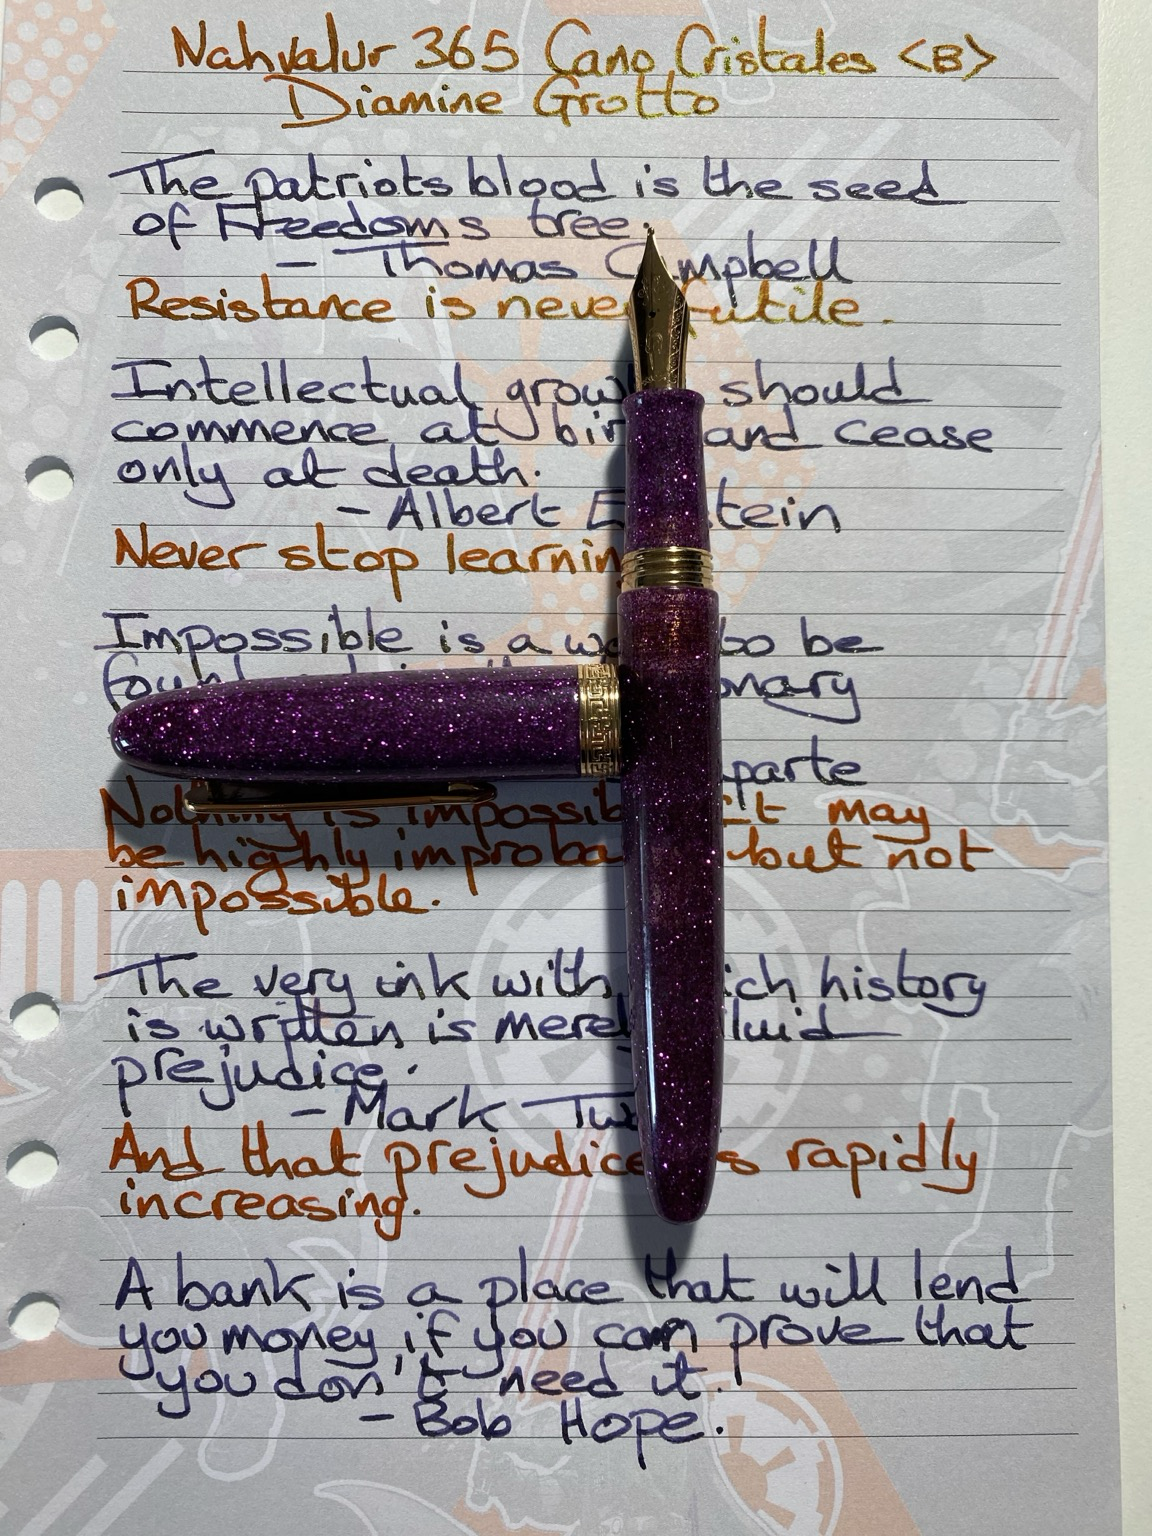 Nahvalur 365 Cano Cristales <B>
Diamine Grotto
The patriots blood is the seed
of Freedoms tree.
- Thomas Campbell
Resistance is never futile.
Intellectual growth should
commence at birth and cease
only at death.
- Albert Einstein
Never stop learnin
Impossible is a wo to be
foun onary
parte
Nothing is impossib it may
be highly improba but not
impossible.
The very ink with which history
is written is merely fluid
prejudice.
- Mark Twa
And that prejudice is rapidly
increasing.
A bank is a place that will lend
you money, if you can prove that
you don't need it.
- Bob Hope.